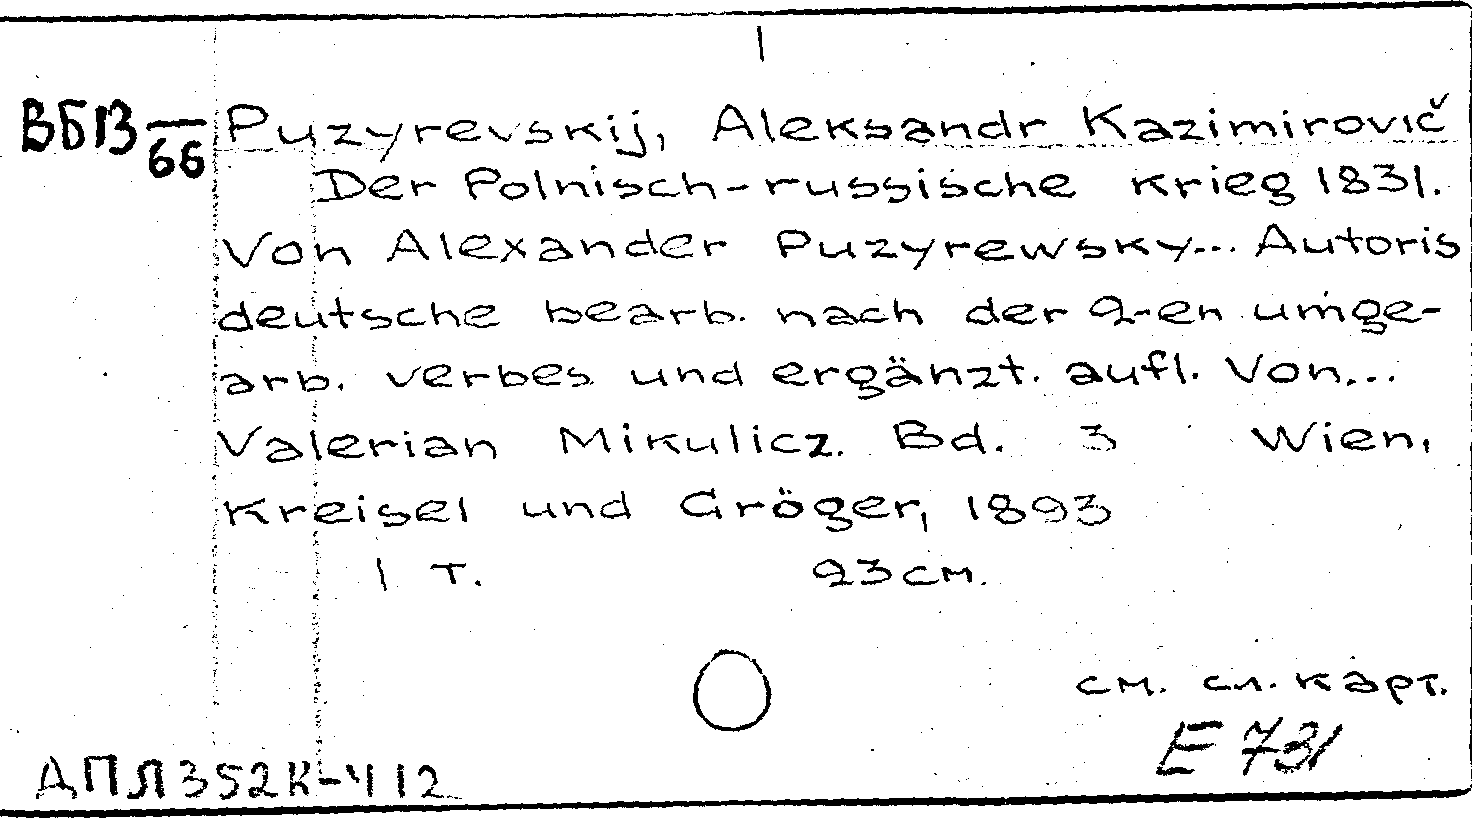 1
ВБІЗ/66 Puzyrevskij, Aleksandr Kazimirovič
Der Polnisch-russische krieg 1831.
Von Alexander Puzyrewsky... Autoris
deutsche bearb. nach der 2-en umge-
arb. verbes und ergänzt. aufl. Von...
Valerian Mikulicz. Bd. 3 Wien,
Kreisel und Gröger, 1893
1 т. 23 см.
см. сл. карт.
E 731
ДПЛ352К-412